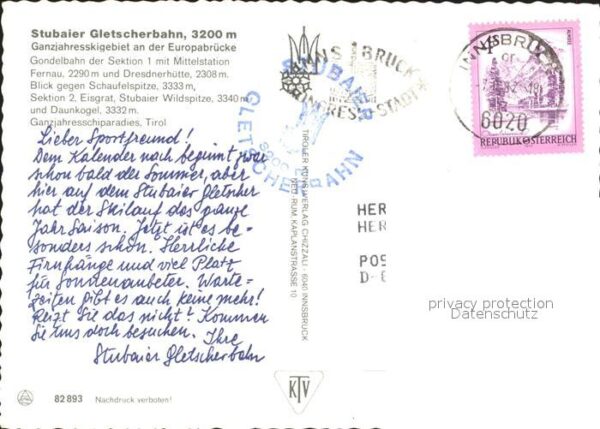 Stubaier Gletscherbahn, 3200 m
Ganzjahresskigebiet an der Europabrücke
Gondelbahn der Sektion 1 mit Mittelstation
Fernau, 2290 m und Dresdnerhütte, 2308 m.
Blick gegen Schaufelspitze, 3333 m,
Sektion 2, Eisgrat, Stubaier Wildspitze, 3340 m
und Daunkogel, 3332 m.
Ganzjahresschiparadies, Tirol
Lieber Sportfreund!
Dem Kalender nach beginnt zwar
schon bald der Sommer, aber
hier auf dem Stubaier Gletscher
hat der Skilauf das ganze
Jahr Saison. Jetzt ist es be-
sonders schön. Herrliche
Firnhänge und viel Platz
für Sonnenanbeter. Warte-
zeiten gibt es auch keine mehr!
Reizt Sie das nicht? Kommen
Sie uns doch besuchen. Ihre
Stubaier Gletscherbahn
82 893 Nachdruck verboten!
INNSBRUCK
KONGRESS-STADT
STUBAIER
GLETSCHERBAHN
TIROLER KUNSTVERLAG CHIZZALI · 6040 INNSBRUCK
NEU RUM, KAPLANSTRASSE 10
KTV
INNSBRUCK
6020
REPUBLIK ÖSTERREICH
HER
HER
POS
privacy protection
Datenschutz